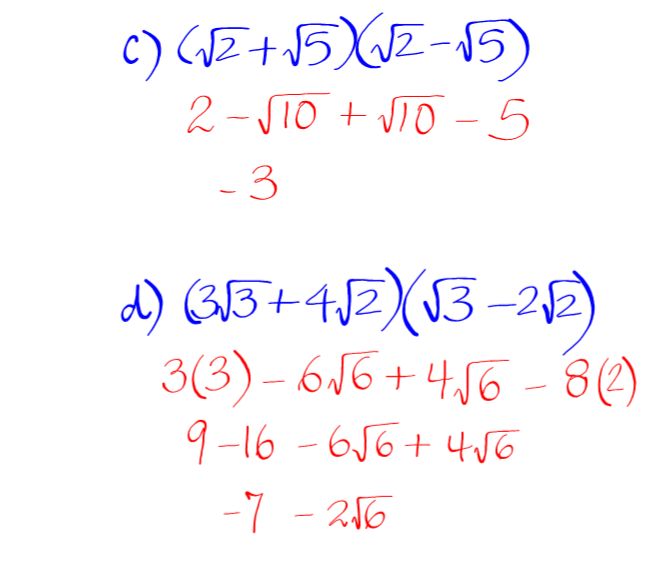 c) (√2+√5)(√2-√5)
2-√10+√10-5
-3
d) (3√3+4√2)(√3-2√2)
3(3)-6√6+4√6-8(2)
9-16-6√6+4√6
-7-2√6